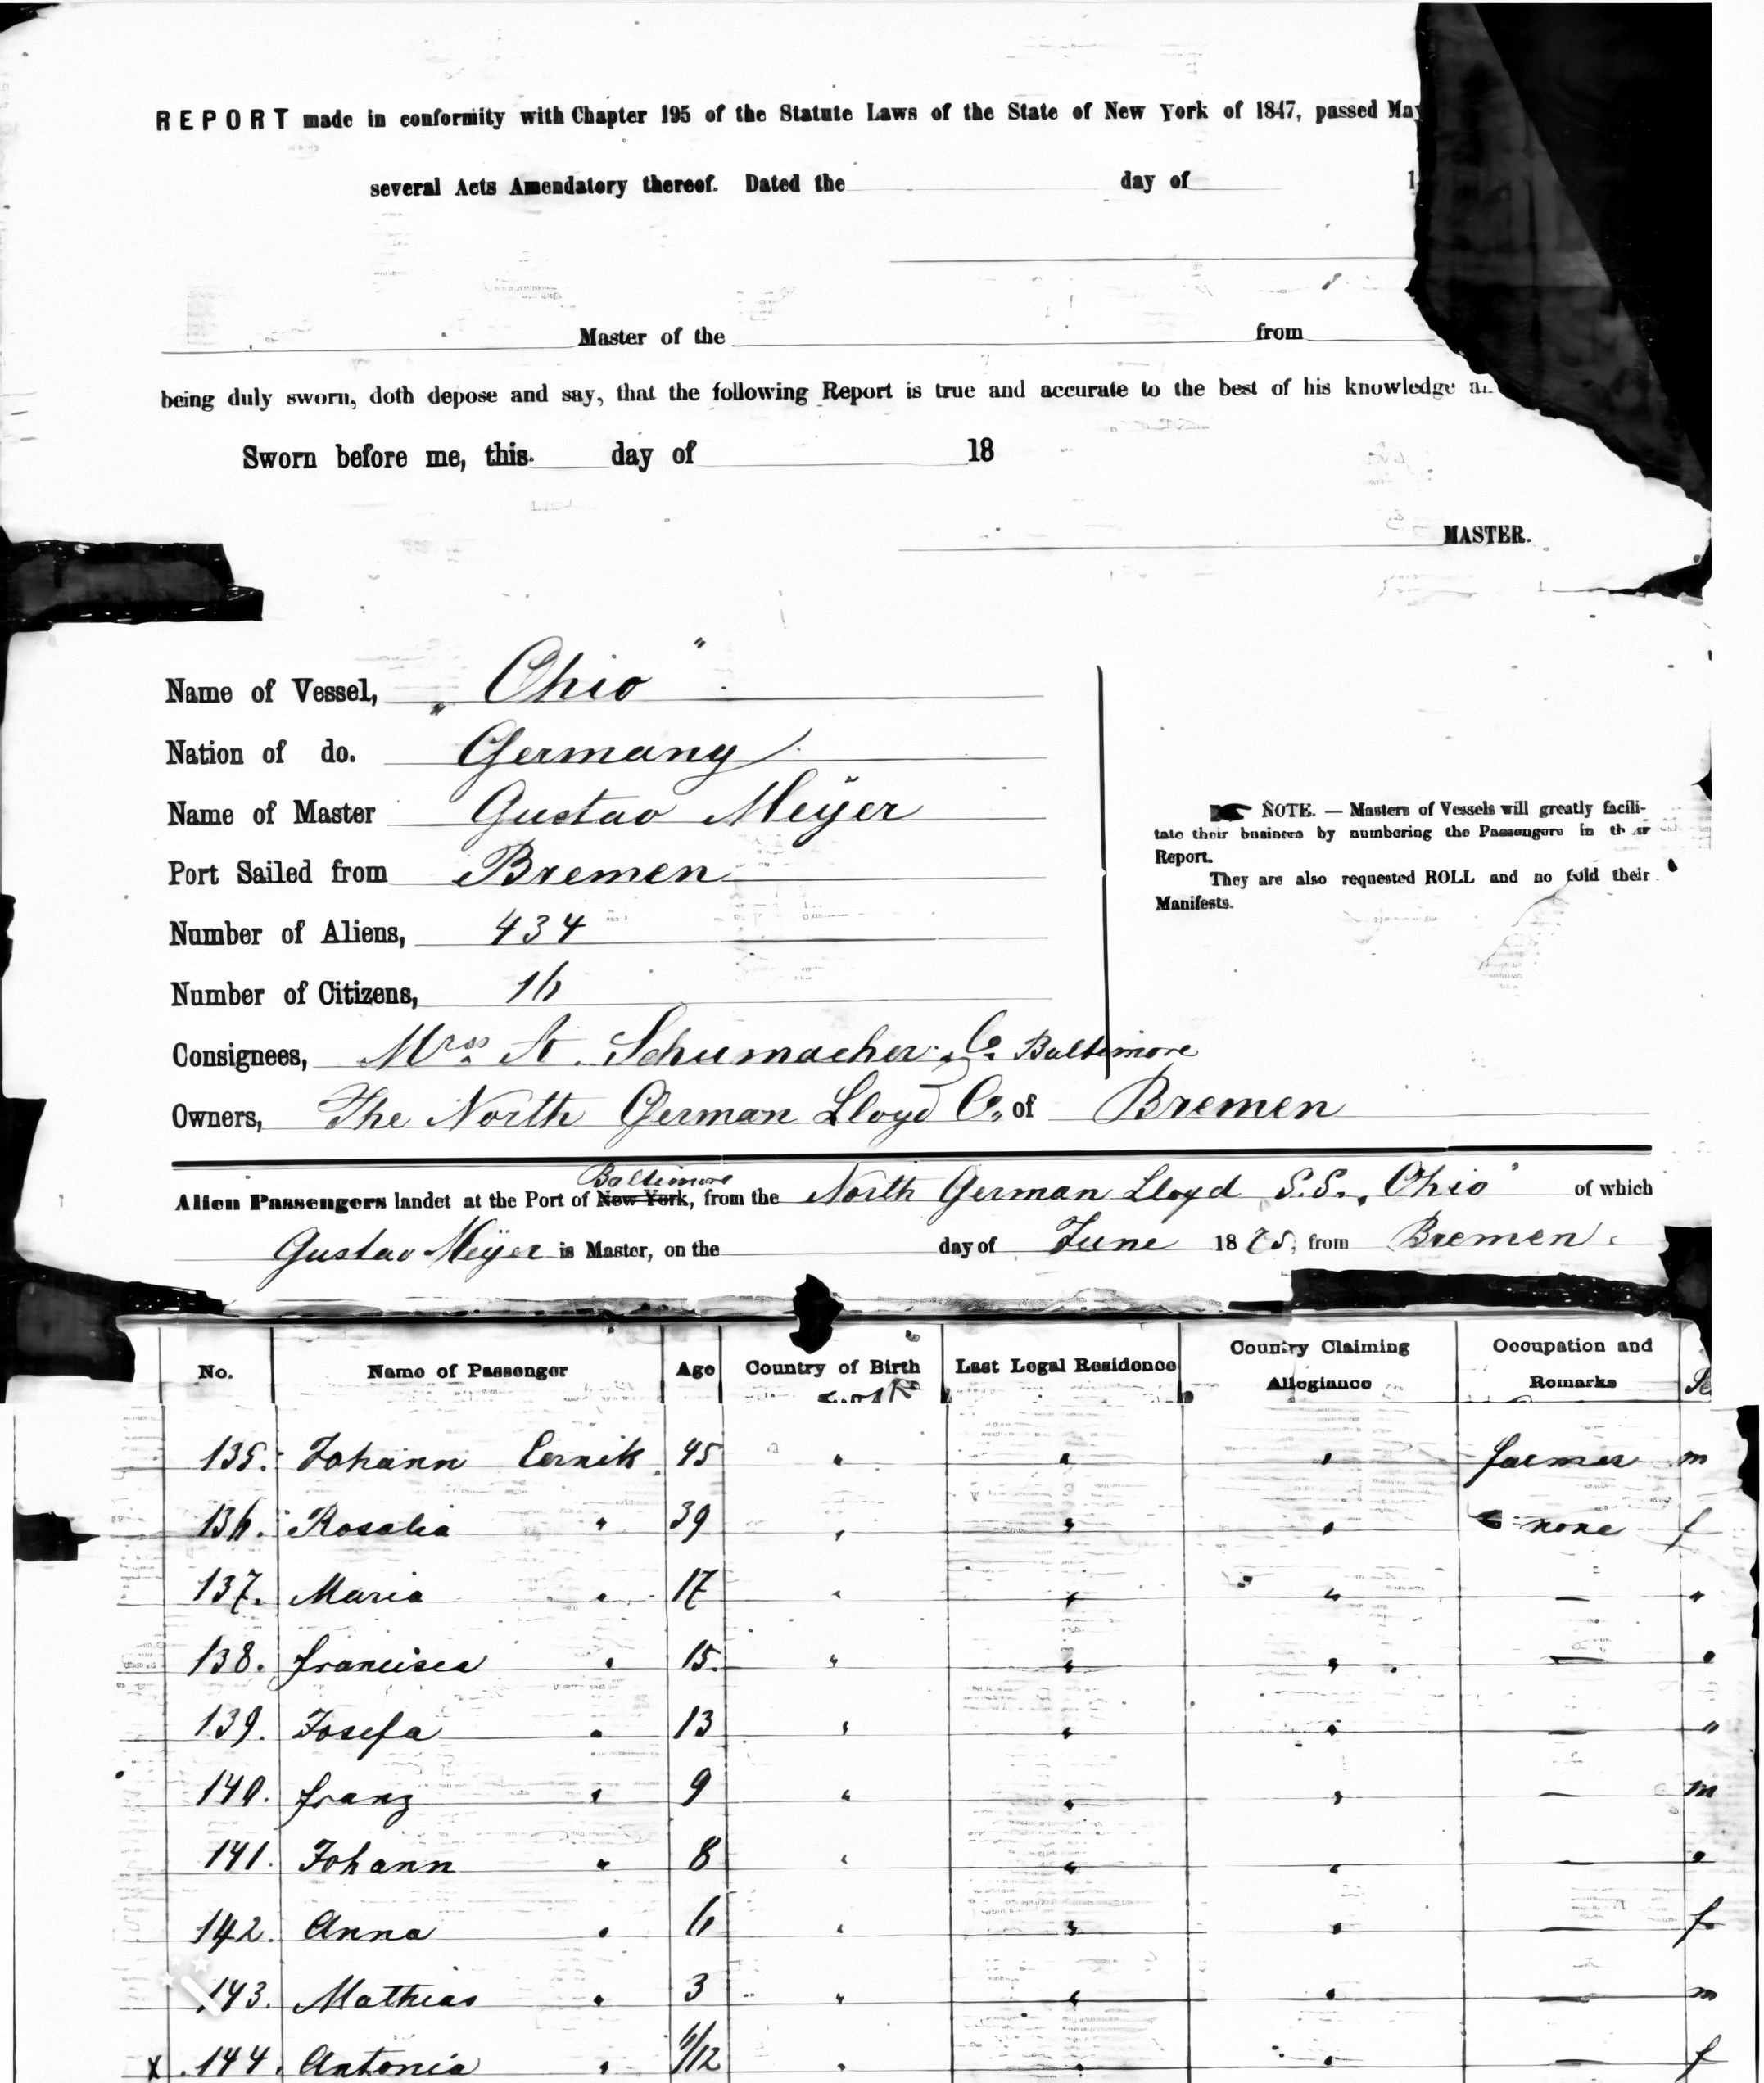 REPORT made in conformity with Chapter 195 of the Statute Laws of the State of New York of 1847, passed May
several Acts Amendatory thereof. Dated the day of 1
Master of the from
being duly sworn, doth depose and say, that the following Report is true and accurate to the best of his knowledge
Sworn before me, this day of 18
MASTER.
Name of Vessel, „ Ohio "
Nation of do. Germany
Name of Master Gustav Meÿer
Port Sailed from Bremen
Number of Aliens, 434
Number of Citizens, 16
Consignees, Mrss A. Schumacher & Co. Baltimore
Owners, The North German Lloyd Co. of Bremen
NOTE. — Masters of Vessels will greatly facili-
tate their business by numbering the Passengers in their
Report.
They are also requested ROLL and no fold their
Manifests.
Baltimore
Alien Passengers landet at the Port of New York, from the North German Lloyd S.S. „Ohio" of which
Gustav Meÿer is Master, on the day of June 1875, from Bremen.
No. Name of Passenger Age Country of Birth Last Legal Residence Country Claiming Allegiance Occupation and Remarks Se
135. Johann Cernik 45 " " " farmer m
136. Rosalia " 39 " " " none f
137. Maria " 17 " " " — "
138. Francisca " 15. " " " — "
139. Josefa " 13 " " " — "
140. Franz " 9 " " " — m
141. Johann " 8 " " " — "
142. Anna " 6 " " " — f
143. Mathias " 3 " " " — m
x 144. Antonia " 6/12 " " " — f